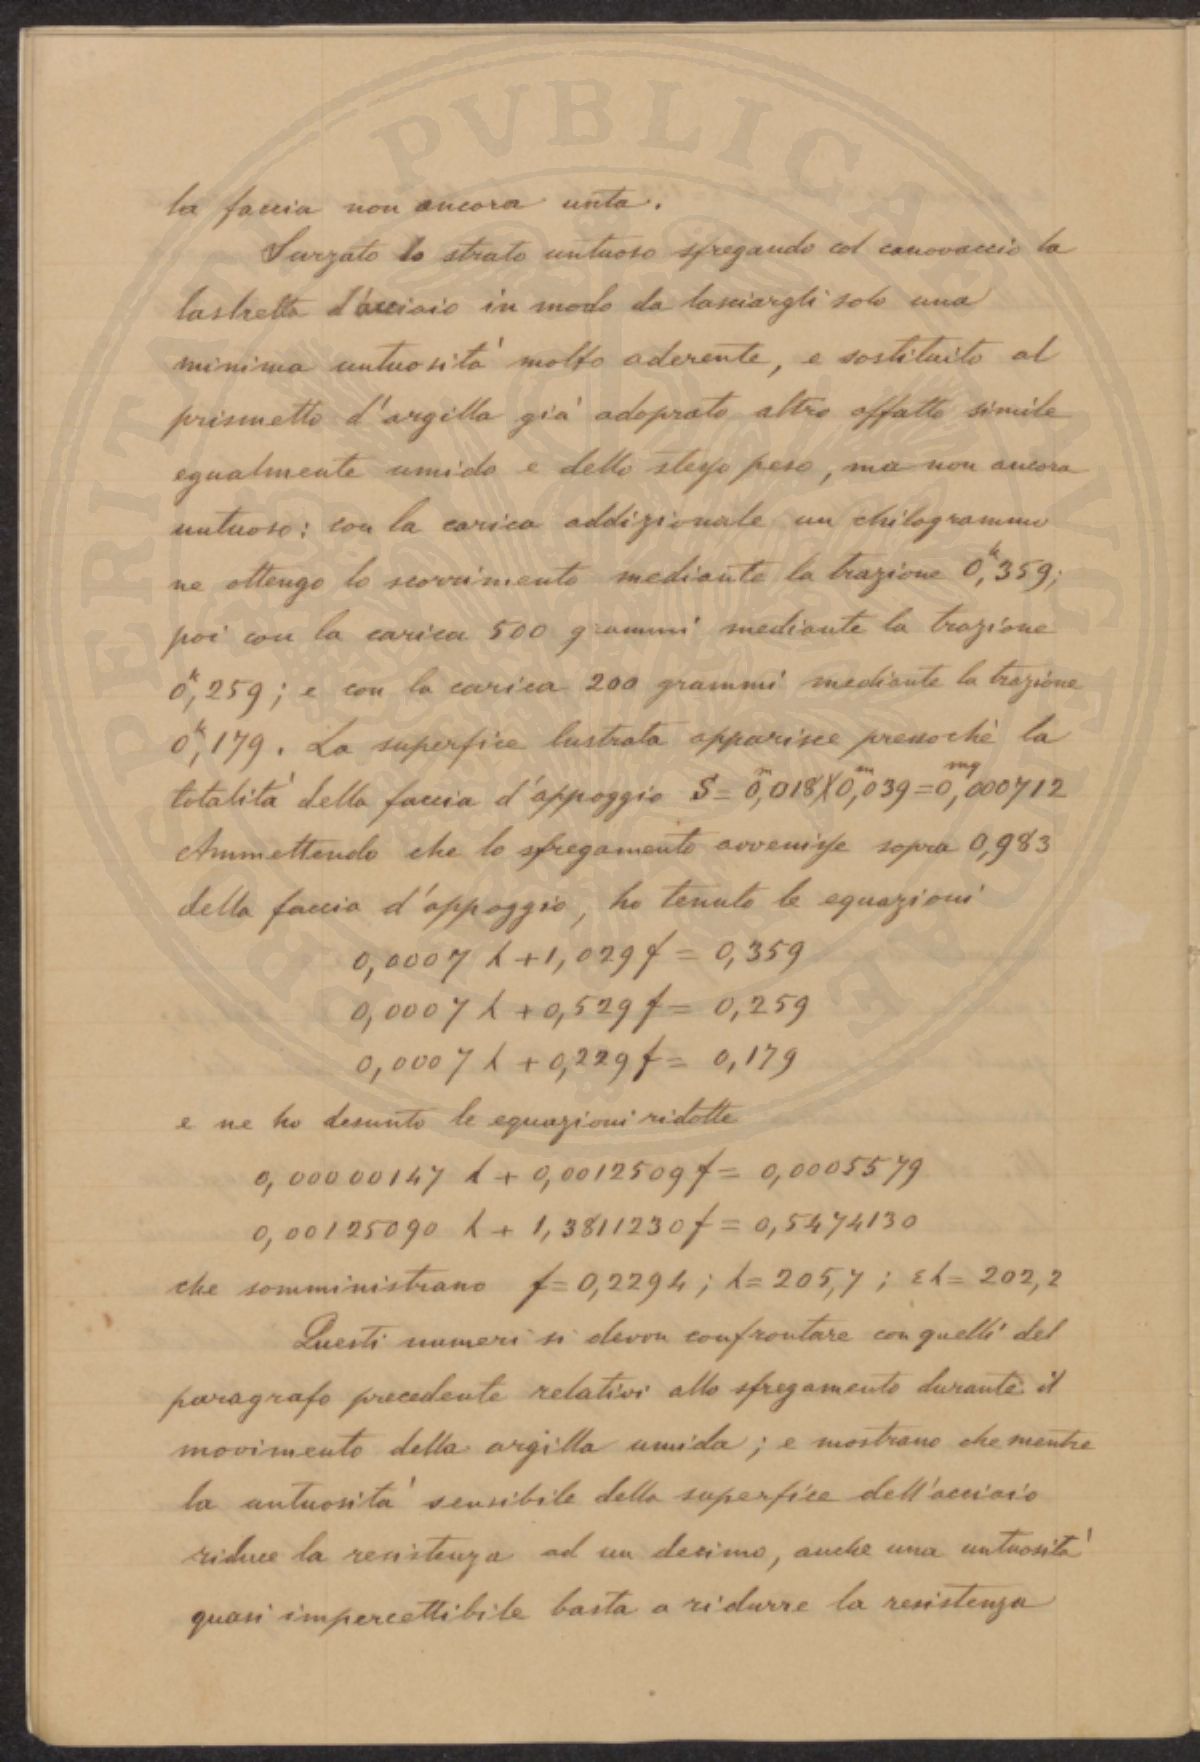 la faccia non ancora unta.
Surzato lo strato untuoso sfregando col canovaccio la
lastretta d'acciaio in modo da lasciargli solo una
minima untuosità molto aderente, e sostituito al
prismetto d'argilla già adoprato altro affatto simile
egualmente umido e dello stesso peso, ma non ancora
untuoso: con la carica addizionale un chilogrammo
ne ottengo lo scorrimento mediante la trazione 0,ᵏ359;
poi con la carica 500 grammi mediante la trazione
0,ᵏ259; e con la carica 200 grammi mediante la trazione
0,ᵏ179. La superfice lustrata apparisce pressochè la
totalità della faccia d'appoggio S=0,ᵐ018X0,ᵐ039=0,ᵐᑫ000712
Ammettendo che lo sfregamento avvenisse sopra 0,983
della faccia d'appoggio, ho tenuto le equazioni
0,0007 λ + 1,029 f = 0,359
0,0007 λ + 0,529 f = 0,259
0,0007 λ + 0,229 f = 0,179
e ne ho desunto le equazioni ridotte
0,00000147 λ + 0,0012509 f = 0,0005579
0,00125090 λ + 1,3811230 f = 0,5474130
che somministrano f=0,2294; λ=205,7; ελ=202,2
Questi numeri si devon confrontare con quelli del
paragrafo precedente relativi allo sfregamento durante il
movimento della argilla umida; e mostrano che mentre
la untuosità sensibile della superfice dell'acciaio
riduce la resistenza ad un decimo, anche una untuosità
quasi impercettibile basta a ridurre la resistenza